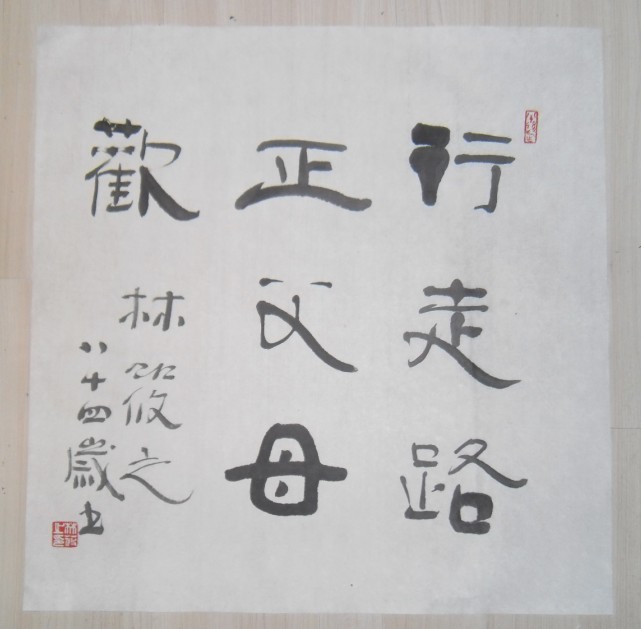 行走路
正父母
歡
林筱之
八十四歲書